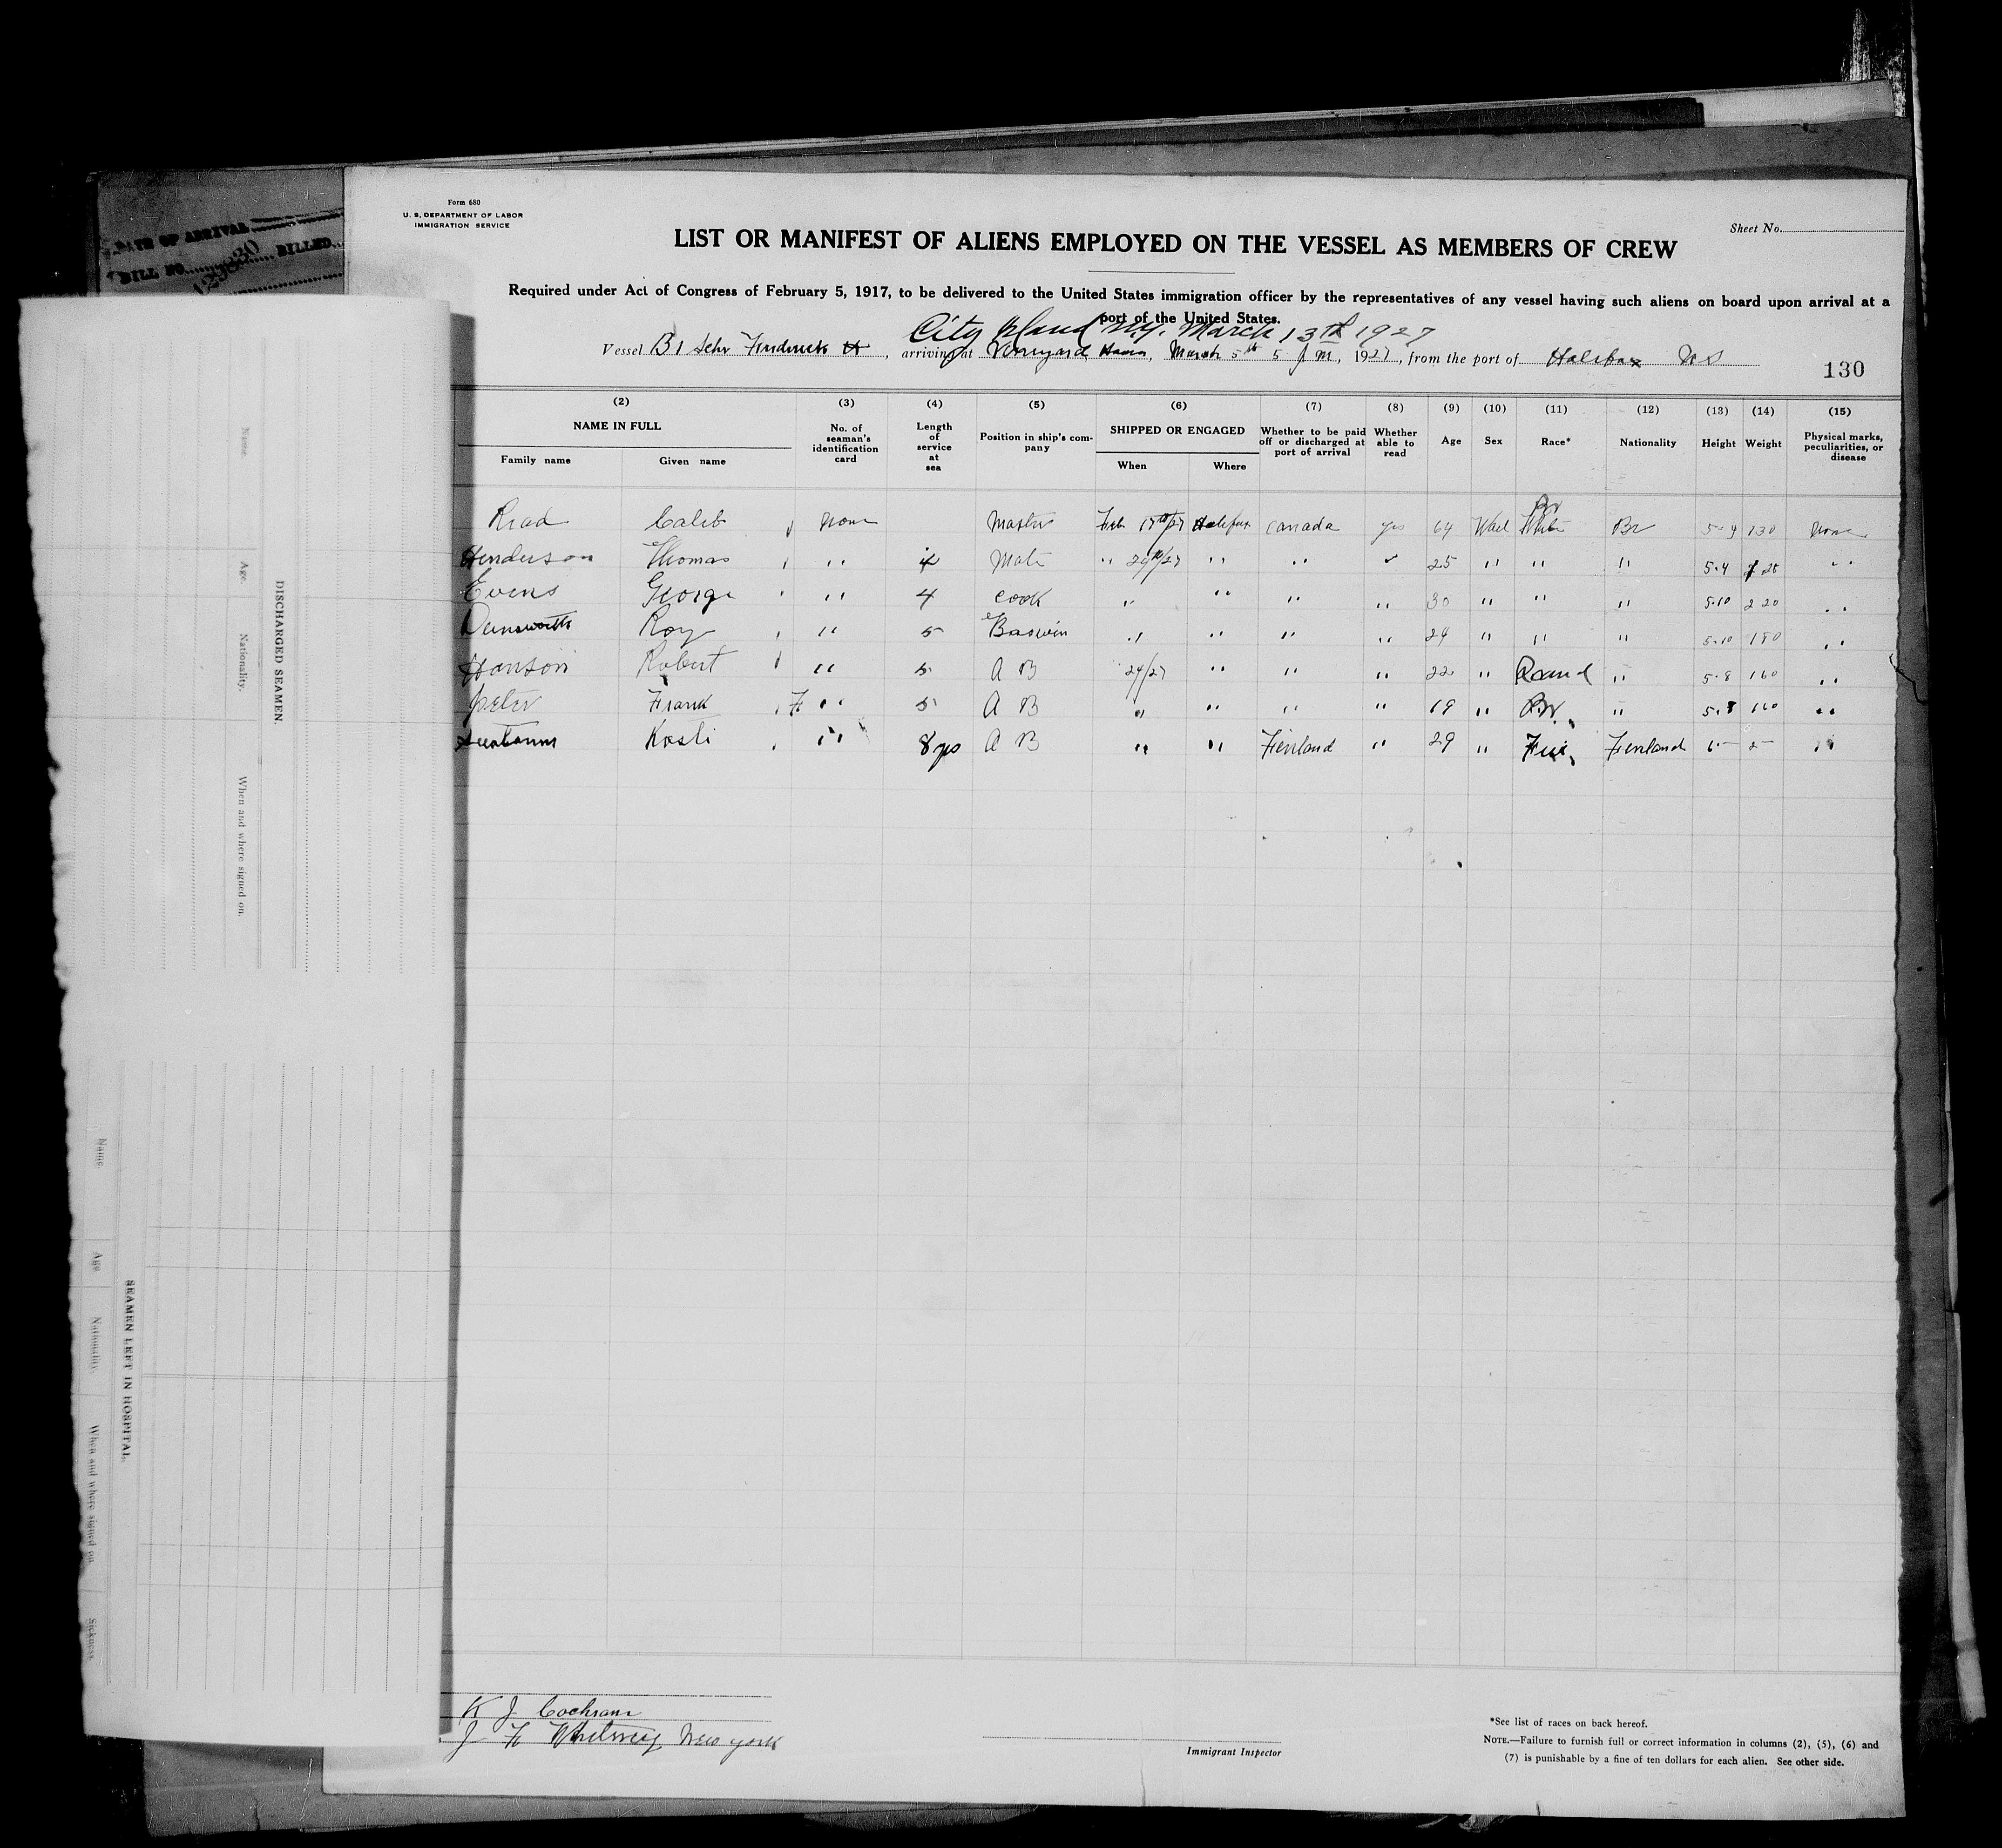 Form 680
U. S. DEPARTMENT OF LABOR
IMMIGRATION SERVICE
Sheet No.
LIST OR MANIFEST OF ALIENS EMPLOYED ON THE VESSEL AS MEMBERS OF CREW
Required under Act of Congress of February 5, 1917, to be delivered to the United States immigration officer by the representatives of any vessel having such aliens on board upon arrival at a
port of the United States.
City Island N.Y. March 13th 1927
Vessel Br Schr Frederick H, arriving at Vineyard Haven, March 5th 5 P M, 1927, from the port of Halifax N S
130
(2) (3) (4) (5) (6) (7) (8) (9) (10) (11) (12) (13) (14) (15)
NAME IN FULL
Family name Given name
No. of seaman's identification card
Length of service at sea
Position in ship's company
SHIPPED OR ENGAGED
When Where
Whether to be paid off or discharged at port of arrival
Whether able to read
Age
Sex
Race*
Nationality
Height
Weight
Physical marks, peculiarities, or disease
Br
Read Caleb None Master Feb 17th/27 Halifax Canada yes 64 White Br 5-9 130 None
Henderson Thomas " 4 Mate " " " 25 " " " 5.4
Evens George " 4 Cook " " " " 30 " " " 5.10 220 "
Roy " 5 Boswin " " " " 24 " " " 5.10 180 "
Hanson Robert " 5 A B 24/27 " " " 22 " " 5.8 160 "
Peter Frank " 5 A B " " " " 19 " Br. " 5.8 160 "
Kosti " 8 yrs A B " " Finland " 29 " Fin. Finland "
K J Cochran
J F Whitney New York
Immigrant Inspector
*See list of races on back hereof.
NOTE.—Failure to furnish full or correct information in columns (2), (5), (6) and
(7) is punishable by a fine of ten dollars for each alien. See other side.
DATE OF ARRIVAL
BILL NO. BILLED
DISCHARGED SEAMEN.
Name Age. Nationality. When and where signed on.
SEAMEN LEFT IN HOSPITAL.
Name Age Nationality. When and where signed on. Sickness.